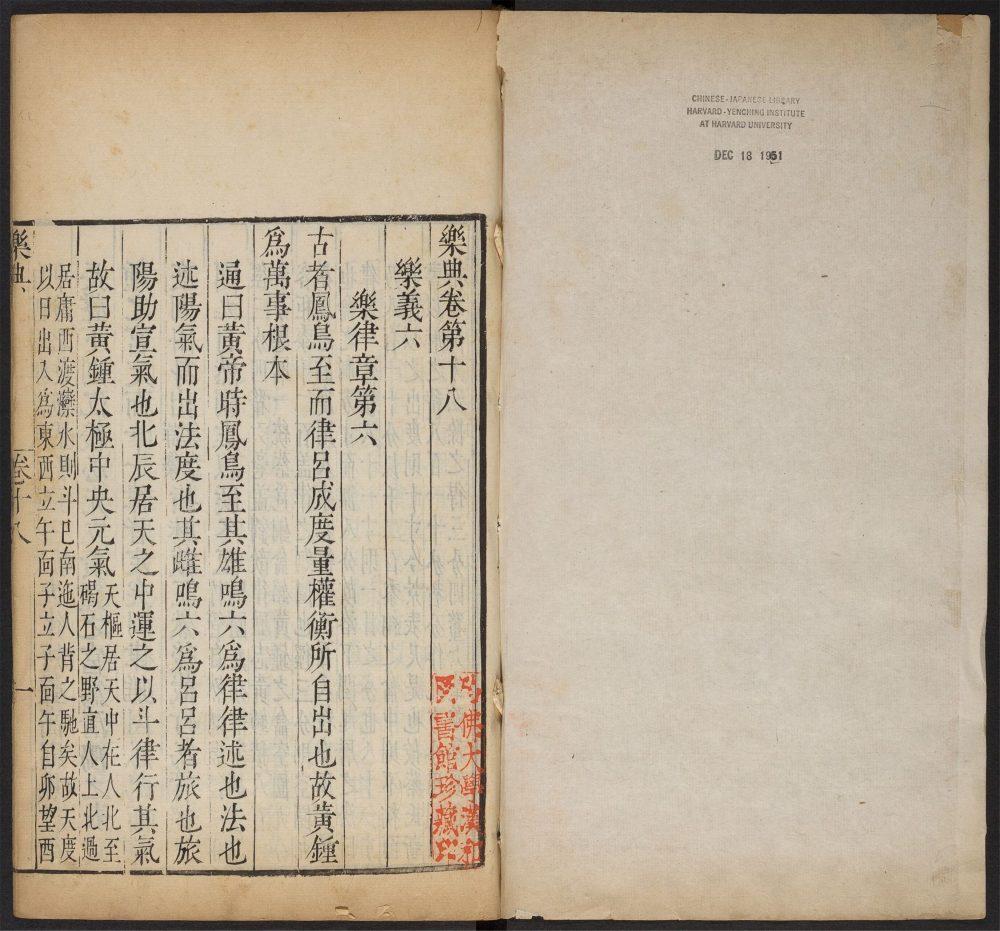 樂典卷第十八
樂義六
樂律章第六
古者鳳鳥至而律呂成度量權衡所自出也故黃鍾
爲萬事根本
通曰黃帝時鳳鳥至其雄鳴六爲律律述也法也
述陽氣而出法度也其雌鳴六爲呂呂者旅也旅
陽助宣氣也北辰居天之中運之以斗律行其氣
故曰黃鍾太極中央元氣
天樞居天中在人北至
碣石之野直人上北過
居庸西渡灤水則斗巳南迤人背之馳矣故天度
以日出入爲東西立午面子立子面午自夘望酉
樂典
卷十八
一
佛大學漢和
書館珍藏印
CHINESE-JAPANESE LIBRARY
HARVARD-YENCHING INSTITUTE
AT HARVARD UNIVERSITY
DEC 18 1951